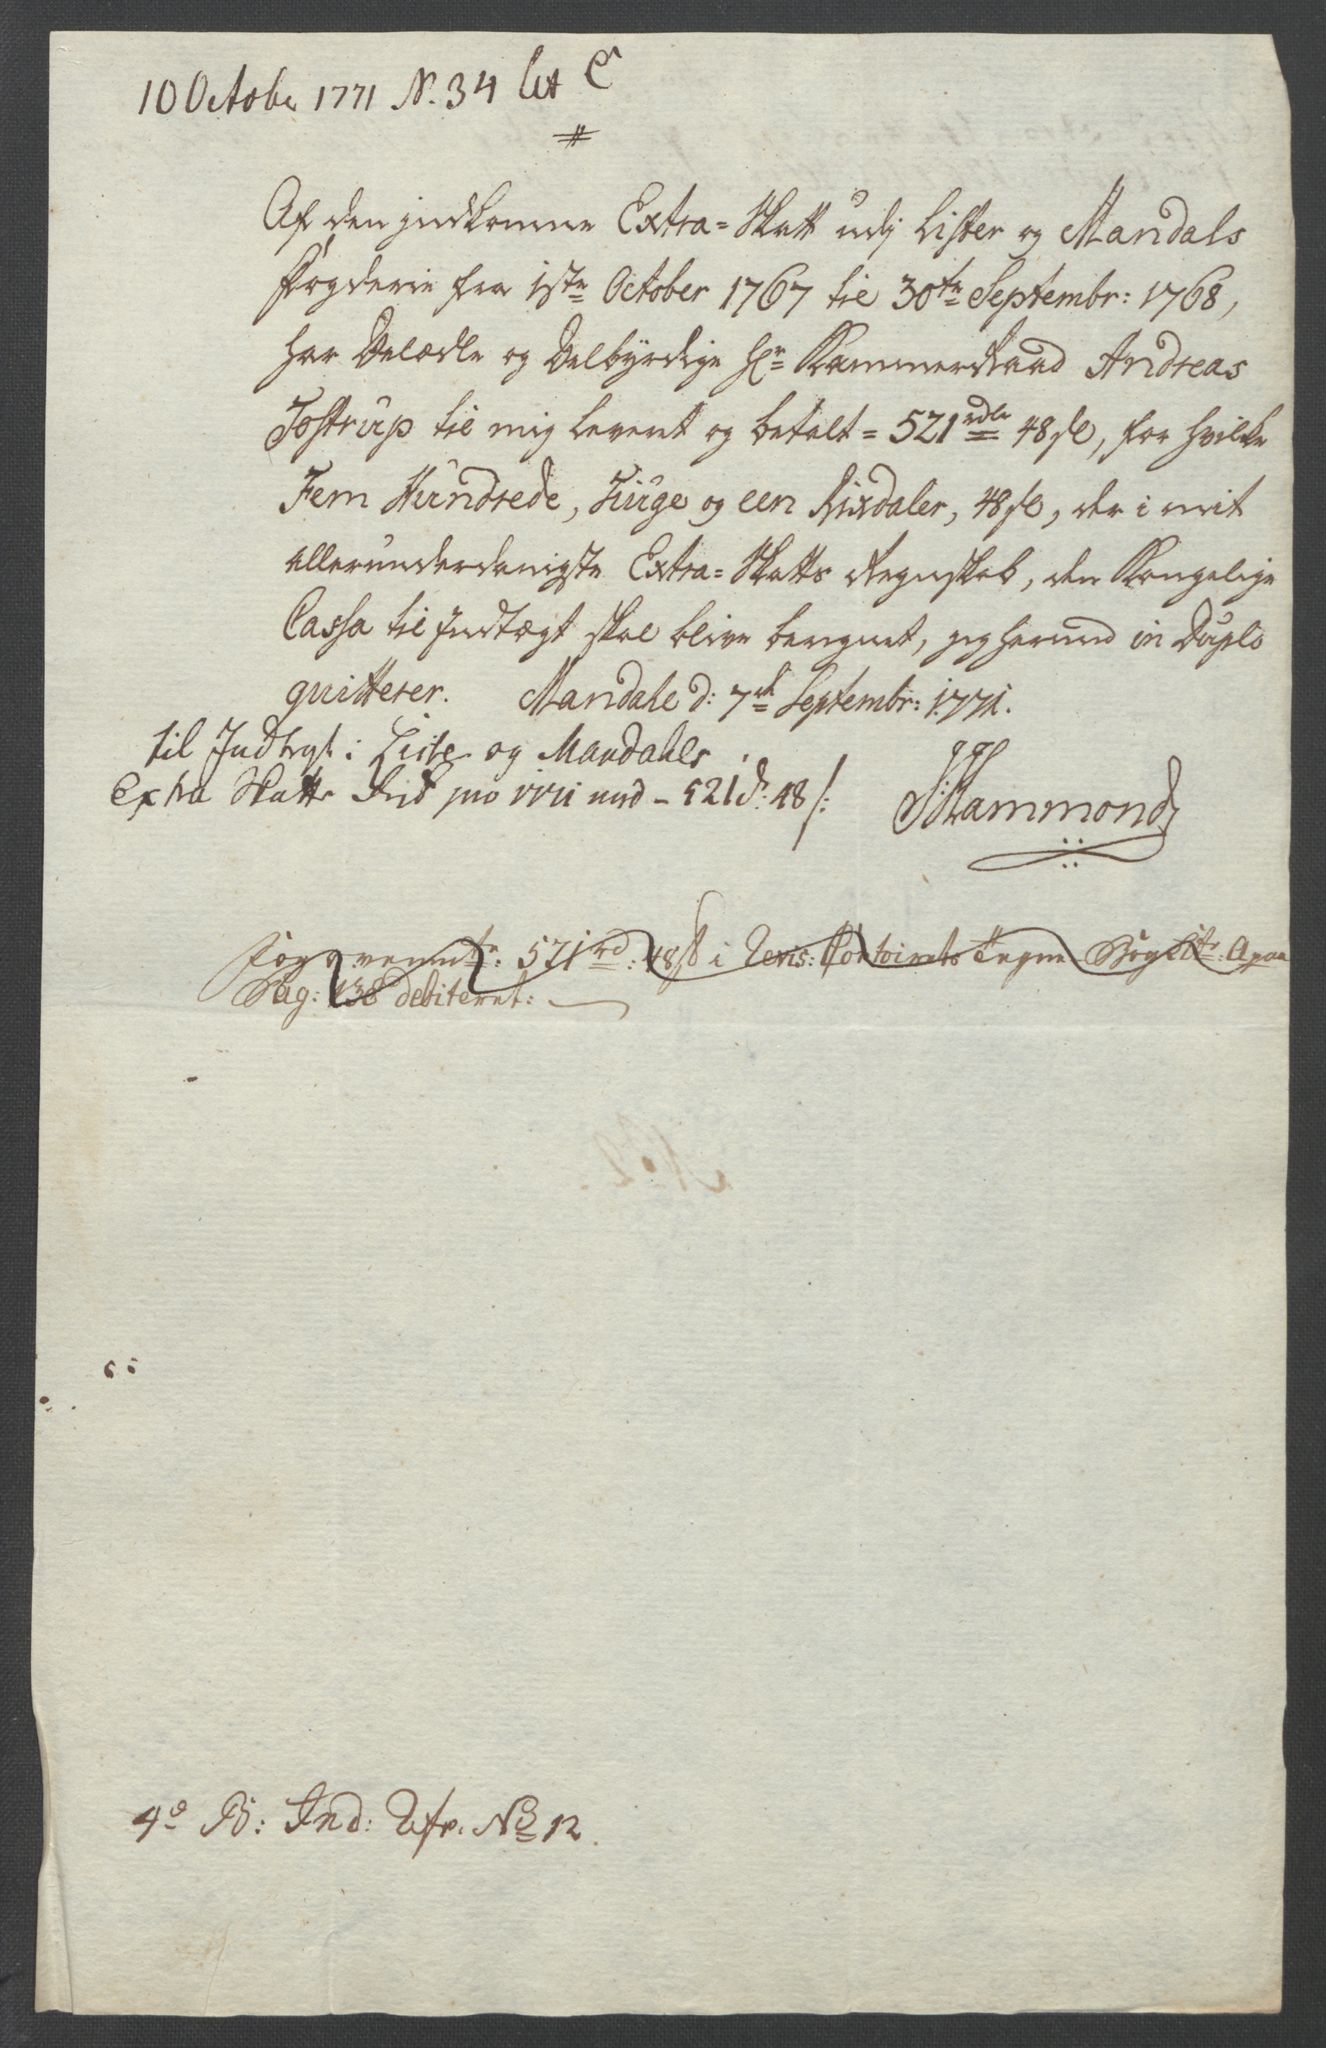 10 October 1771 N. 34 lit C
Af den indkomne Extra-Skatt udj Lister og Mandals
Fogderie fra 1ste October 1767 til 30te Septembr: 1768,
har Velædle og Velbyrdige Hr Kammerraad Andreas
Tostrup til mig leveret og betalt = 521 rdlr 48 sl, for hvilke
Fem Hundrede, Tiuge og een Rixdaler, 48 sl, der i mit
allerunderdanigste Extra-Skatts Regnskab, den Kongelige
Cassa til Indtægt skal blive beregnet, jeg herved in Duplo
qvitterer. Mandahl d: 7de Septembr: 1771.
til Indtegt i Lister og Mandahls
Extra Skatts Rns pro 1771 med - 521 d: 48 s:
Hammond
521 rd: 48 s i Revis: Contoirets Bog Litr: A paa
Pag: 138 debiteret:
4o B: Ind: No 12